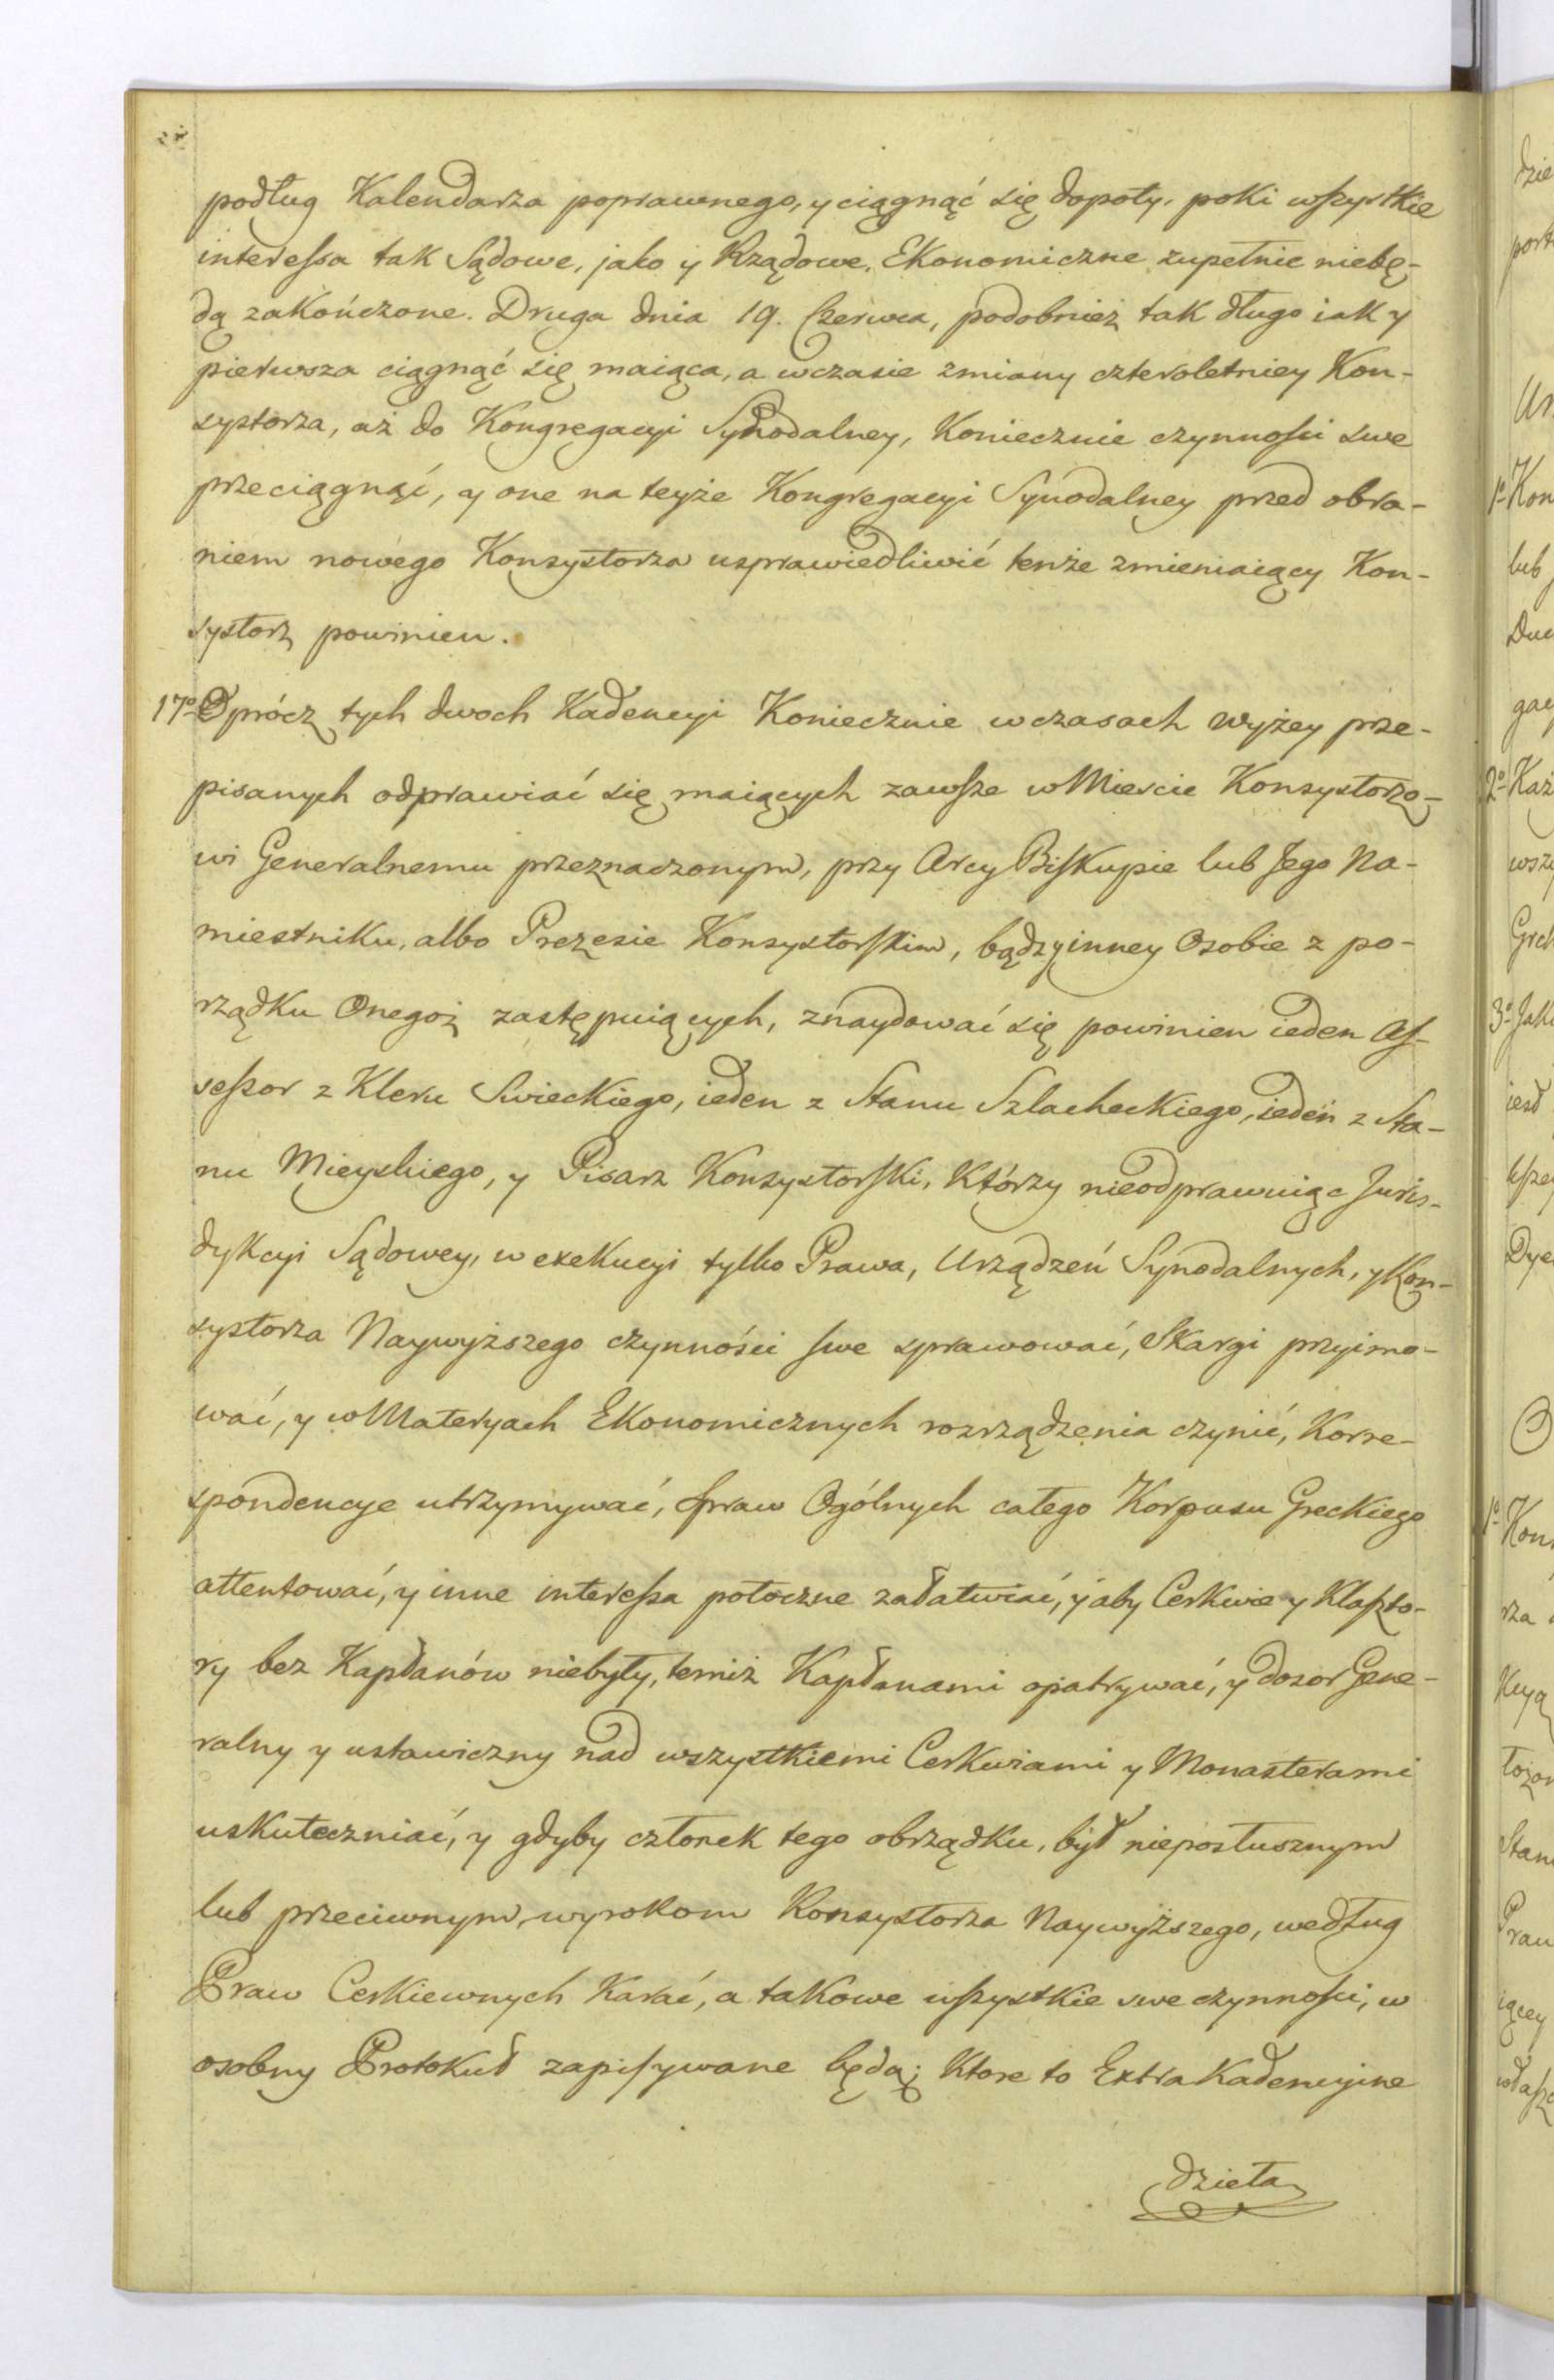 podług Kalendarza poprawnego, y ciągnąć się dopoty, poki wszystkie
interessa tak Sądowe, jako y Rządowe, Ekonomiczne zupełnie niebę-
dą zakończone. Druga dnia 19. Czerwca, podobnież tak długo iak y
pierwsza ciągnąć się maiąca, a wczasie zmiany czteroletniey Kon-
systorza, aż do Kongregacyi Synodalney, Koniecznie czynności swe
przeciągnąć, y one na teyże Kongregacyi Synodalney przed obra-
niem nowego Konzystorza usprawiedliwić tenże zmieniaiący Kon-
systorz powinien.
17o Oprócz tych dwoch Kadencyi Koniecznie wczasach wyżey prze-
pisanych odprawiać się maiących zawsze w Miescie Konzystorzo-
wi Generalnemu przeznaczonym, przy Arcy Biskupie lub Jego Na-
miestniku, albo Prezesie Konzystorskim, bądzyinney Osobie z po-
rządku Onegoż zastępuiących, znaydować się powinien ieden As-
sessor z Kleru Swieckiego, ieden z Stanu Szlacheckiego, ieden z Sta-
nu Mieyskiego, y Pisarz Konzystorski, Którzy nieodprawuiąc Juris-
dykcyi Sądowey, w exekucyi tylko Prawa, Urządzeń Synodalnych, y Kon-
systorza Naywyższego czynności swe sprawować, Skargi przyimo-
wać, y w Materyach Ekonomicznych rozrządzenia czynić, Korre-
spondencye utrzymywać, spraw Ogólnych całego Korpusu Greckiego
attentować, y inne interessa potoczne załatwiać, y aby Cerkwie y Klaszto-
ry bez Kapłanów niebyły, temiż Kapłanami opatrywać, y dozor Gene-
ralny y ustawiczny nad wszystkiemi Cerkwiami y Monasterami
uskuteczniać, y gdyby członek tego obrządku, był nieposłusznym
lub przeciwnym, wyrokom Konzystorza Naywyższego, według
Praw Cerkiewnych Karać, a takowe wszystkie swe czynności, w
osobny Protokuł zapisywane będą; Ktore to Extra Kadencyine
dzieła
dzie
Un
1o Kon
lub
Duc
gac
2o Każ
wszy
3o Jak
iest
Dye
1o Kon
rza
Stan
Praw
iącey